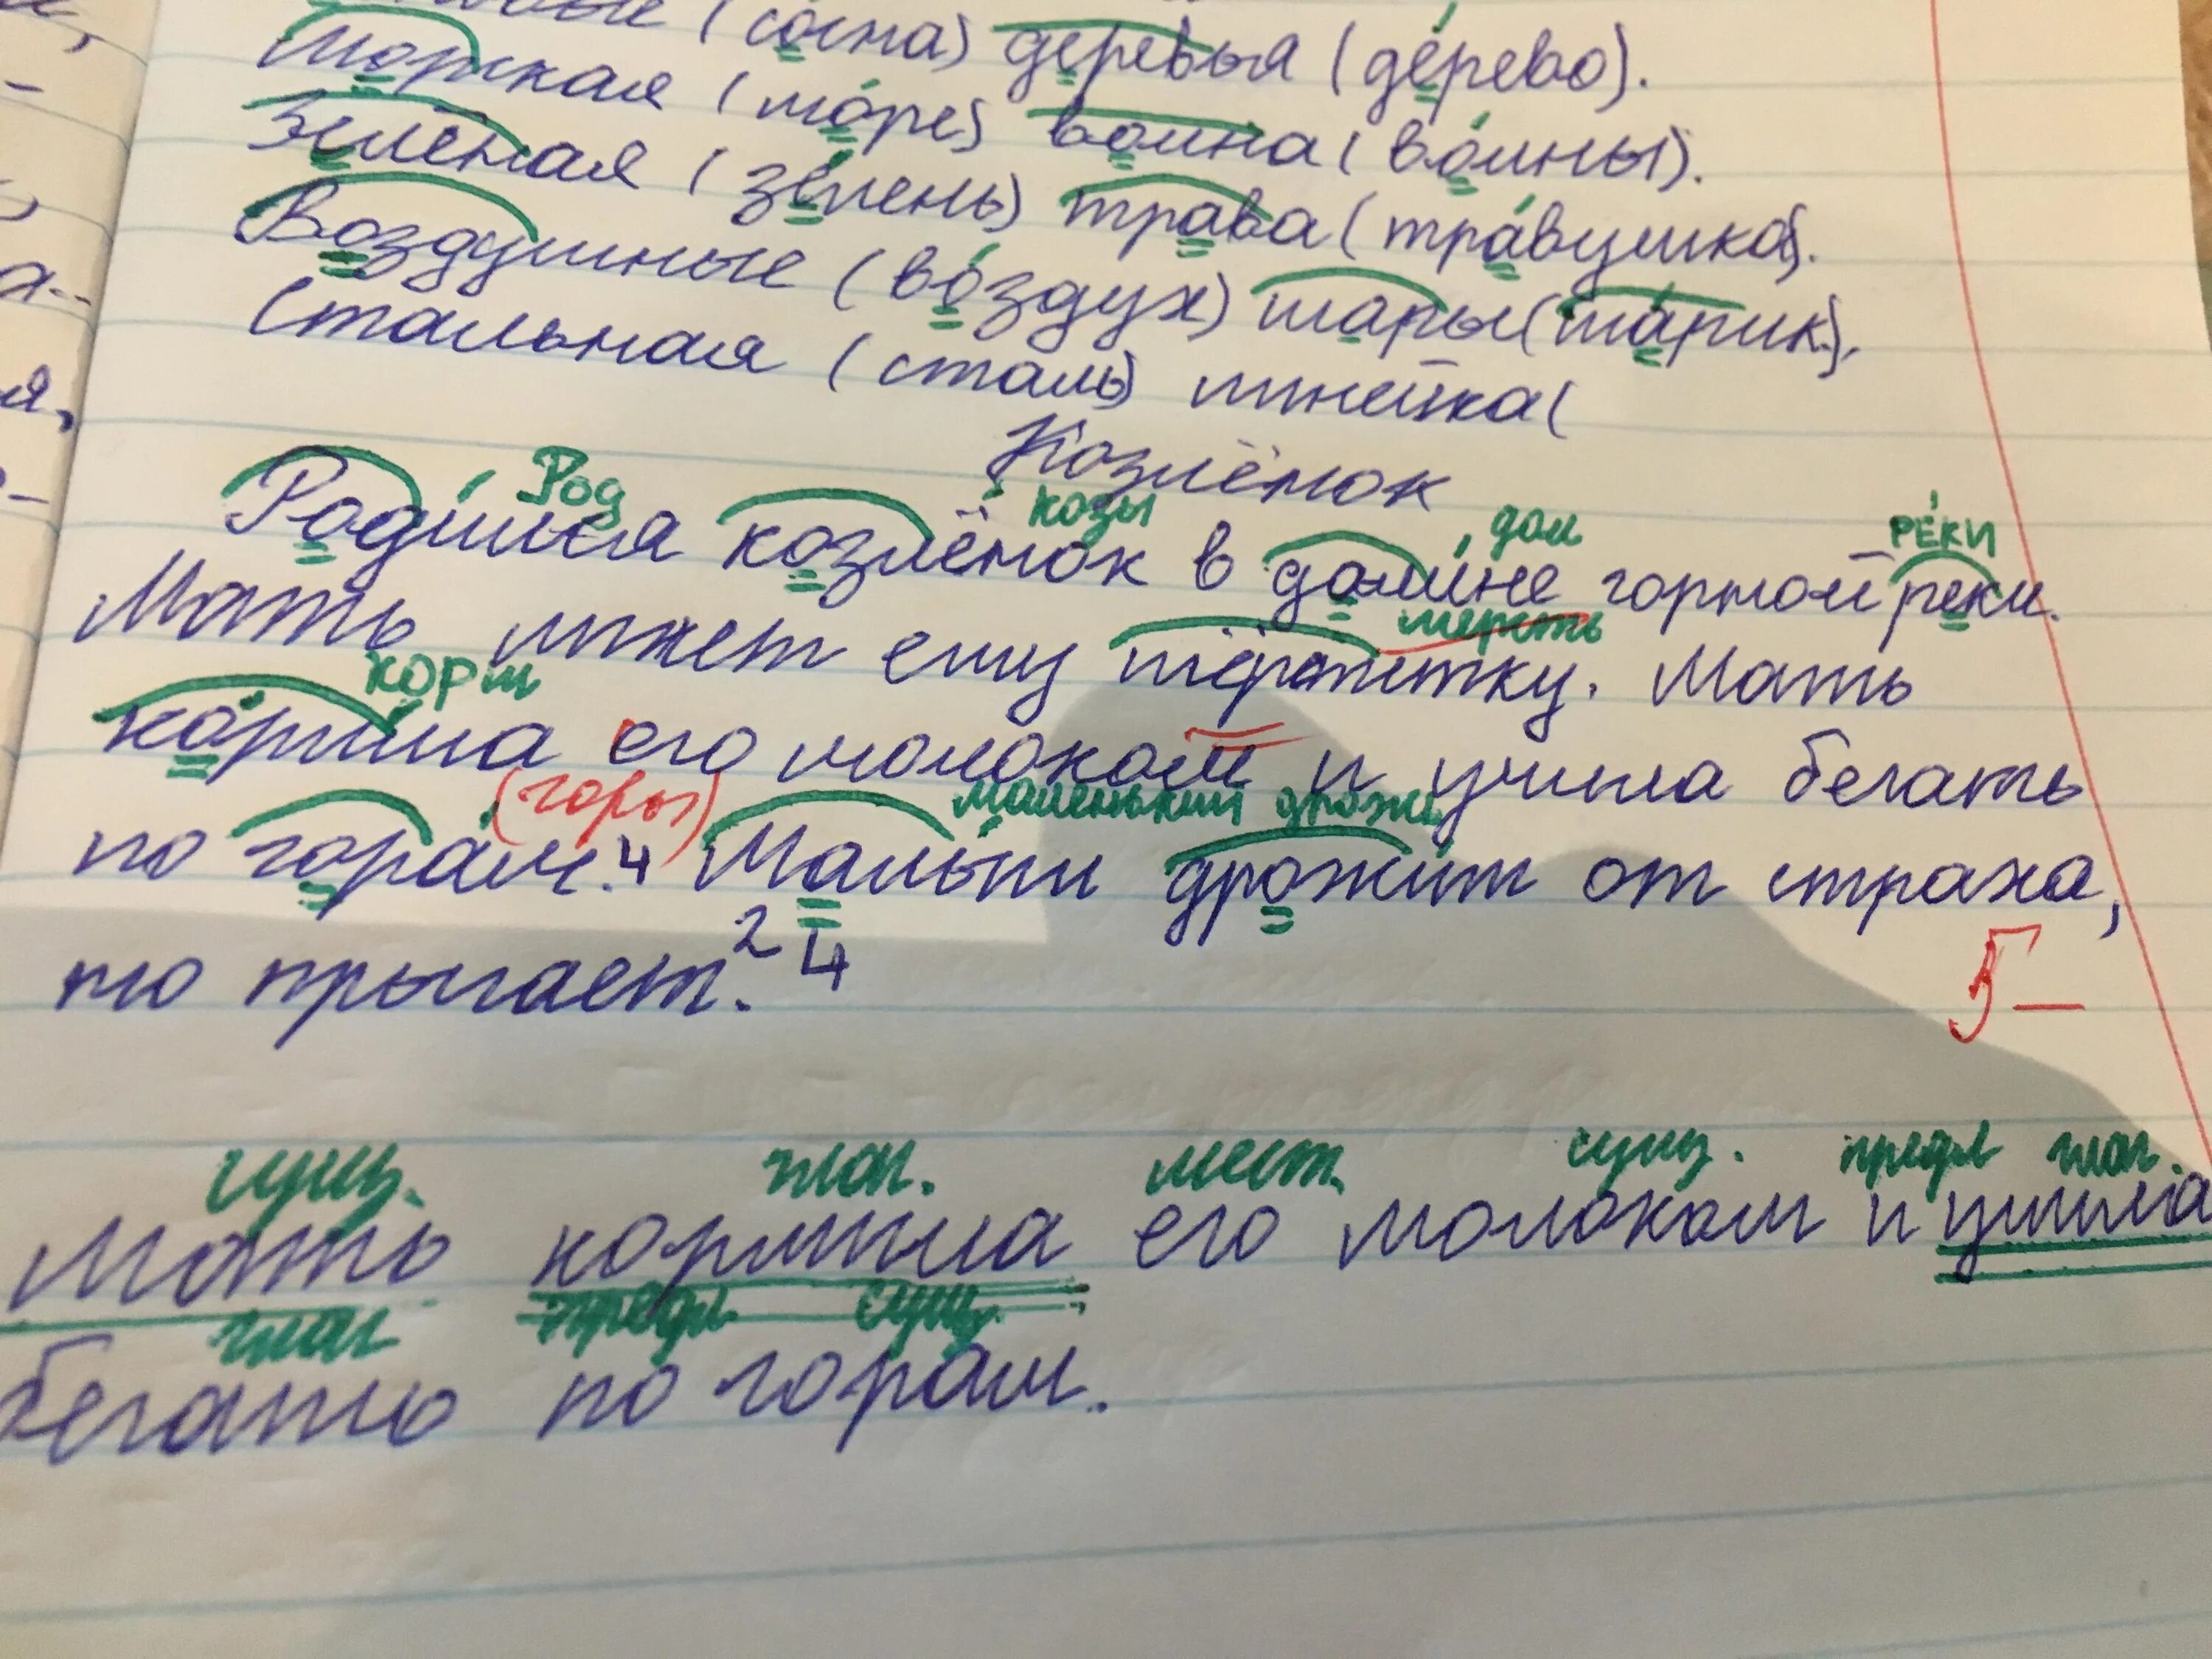 (сосна) деревья (дерево).
Морская (море) волна (волны).
Зелёная (зелень) трава (травушка).
Воздушные (воздух) шары (шарик).
Стальная (сталь) линейка (
Козлёнок
Род козы дол РЕ́КИ
Родился козлёнок в долине горной реки.
шерсть
Мать лижет ему шёрстку. Мать
корм
кормила его молоком и учила бегать
(горы) маленький дрожь
по горам. 4 Малыш дрожит от страха,
но прыгает. 2 4
5-
сущ. глаг. мест. сущ. предл глаг.
Мать кормила его молоком и учила
глаг предл сущ.
бегать по горам.